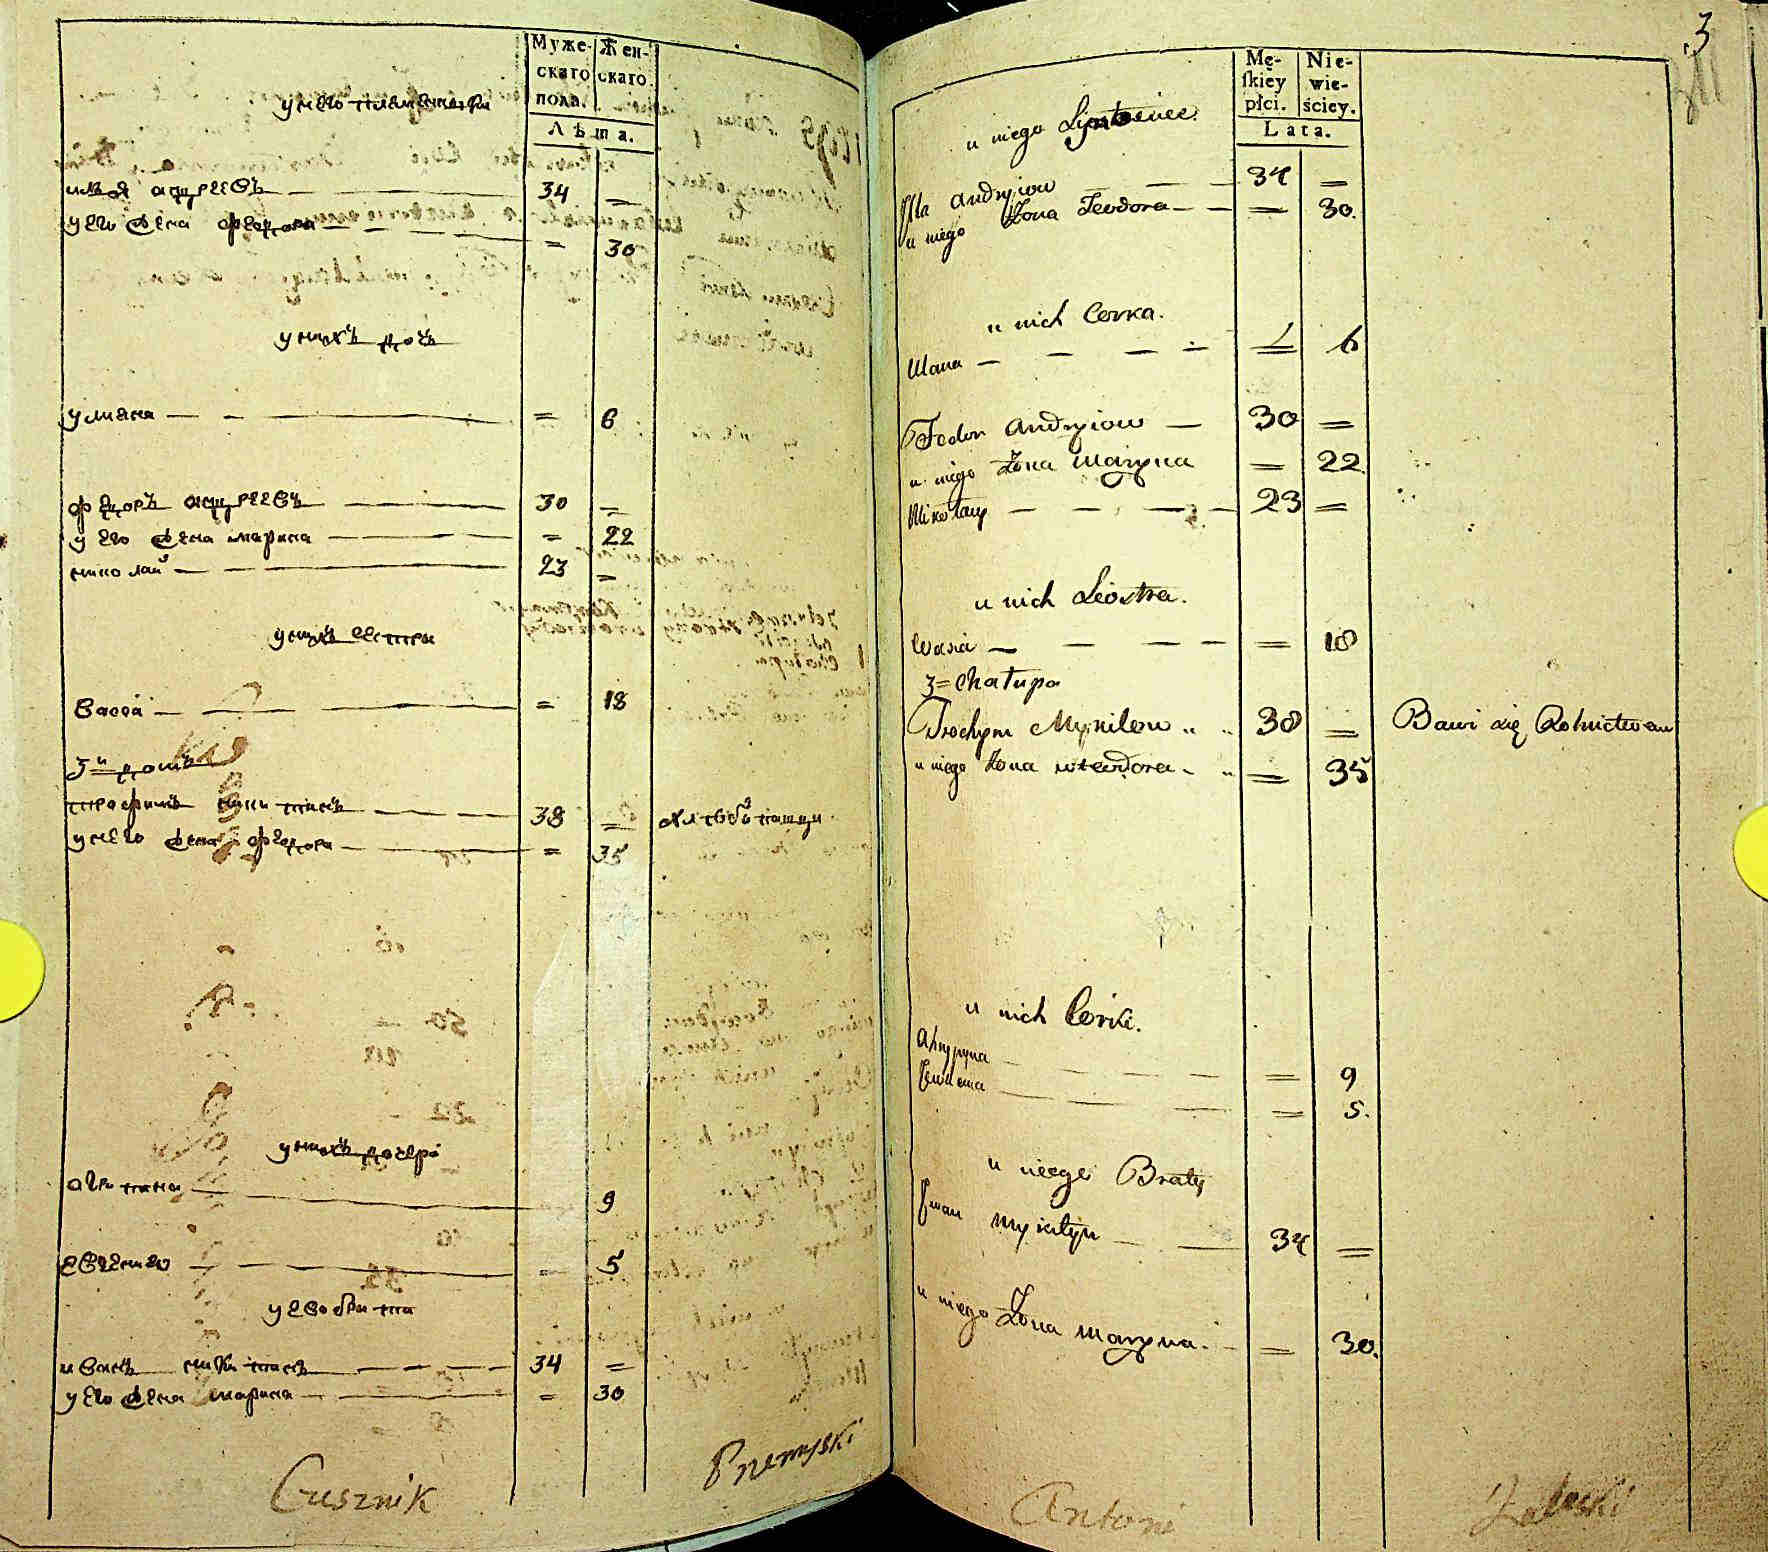 Муже-
скаго
пола.
Жен-
скаго
Лѣта.
у него племенники
илья андреевъ — 34 =
у его жена федора — = 30
у нихъ дочь
ульяна — = 6
федоръ андреевъ — 30 =
у его жена марина — = 22
николай — 23 =
у нихъ сестра
васса — = 18
3й домъ
трофимъ никитинъ — 38 = хлебопашцы
у него жена федора — = 35
у нихъ дочери
агрипина — 9
— = 5
у ево брата
иванъ никитинъ — 34 =
у его жена марина — = 30
Cusznik
Premyski
3
Mę-
ſkiey
płci.
Nie-
wie-
ściey.
Lata.
u niego
Illa Andryiow — 34 =
u niego Żona Teodora — = 30.
u nich Corka.
— = 6
Fedor Andryiow — 30 =
u niego Żona Maryna = 22
Mikołay — 23 =
u nich Siostra.
Wasia — = 18
3 = Chałupa
Trochym Mykiten 38 = Bawi się Rolnictwem
u niego Żona Teodora = 35
u nich Corki.
Ahrypyna — = 9
— = 5.
u niego Braty
Iwan Mykityn — 34 =
u niego Żona Maryna. — = 30.
Antoni
Zaleski